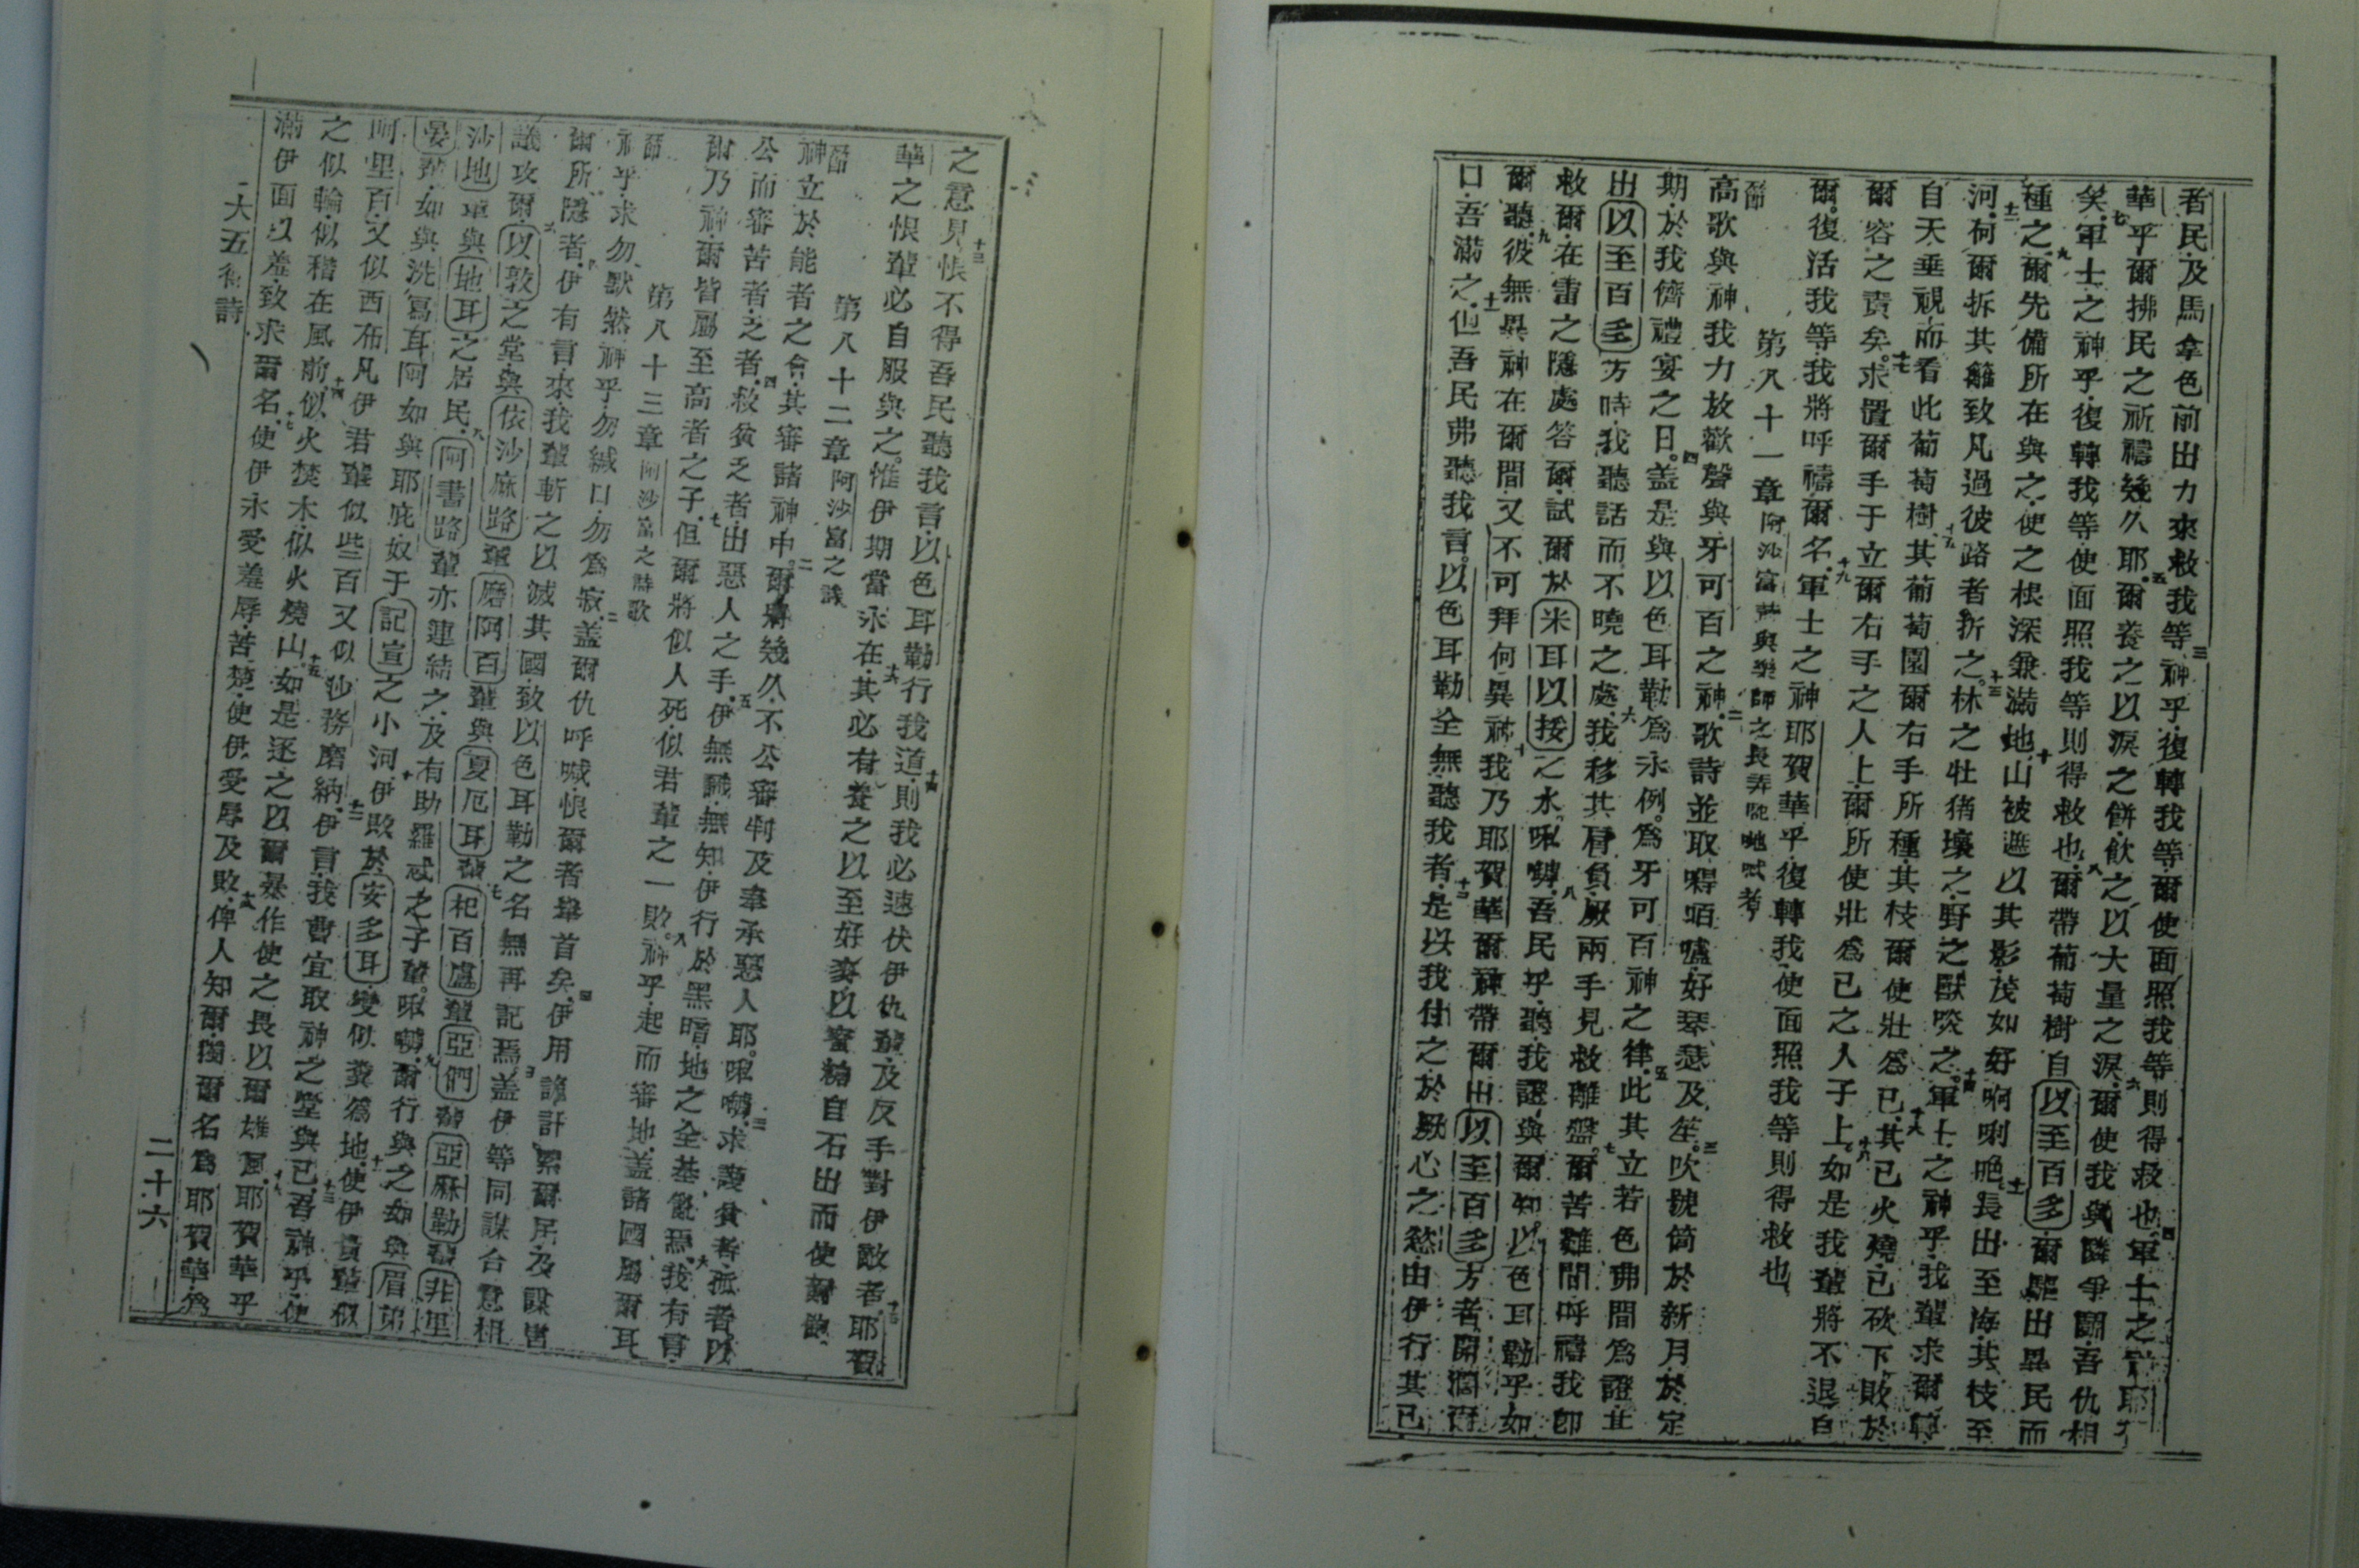 者民及馬拿色前出力來救我等三神乎復轉我等爾使面照我等則得救也四軍士之神耶
華乎爾拂民之祈禱幾久耶五爾養之以淚之餅飲之以大量之淚六爾使我與隣爭鬬吾仇相
矣七軍士之神乎復轉我等使面照我等則得救也八爾帶葡萄樹自以至百多爾驅出異民而
種之九爾先備所在與之使之根深兼滿地十山被遮以其影茂如好啊唎𠵽十一長出至海其枝至
河十二何爾拆其籬致凡過彼路者折之十三林之壯猪壞之野之獸啖之十四軍士之神乎我輩求爾
自天垂視而看此葡萄樹十五其葡萄園爾右手所種其枝爾使壯為己十六其已火燒已砍下敗於
爾容之責矣十七求置爾手于立爾右手之人上爾所使壯為己之人子上十八如是我輩將不退自
爾復活我等我將呼禱爾名十九軍士之神耶賀華乎復轉我使面照我等則得救也
第八十一章阿沙富詩與樂師之長弄
節
高歌與神我力放歡聲與牙可百之神二歌詩並取好琴瑟及笙三吹號筒於新月於定
期於我儕禮宴之日四盖是與以色耳勒為永例為牙可百神之律五此其立若色弗間為證
出以至百多方時我聽話而不曉之處六我移其肩負厥兩手見救離盤七爾苦難間呼禱我卽
救爾在雷之隱處答爾試爾於米耳以挼之水㗫𡄡八吾民乎聽我證與爾知以色耳勒乎如
爾聽九彼無異神在爾間又不可拜何異神十我乃耶賀華爾神帶爾出以至百多方者開濶爾
口吾滿之十一但吾民弗聽我言以色耳勒全無聽我者十二是以我付之於厥心之慾由伊行其己
之意見十三恨不得吾民聽我言以色耳勒行我道十四則我必速伏伊仇輩及反手對伊敵者十五耶賀
華之恨輩必自服與之惟伊期當永在十六其必有養之以至好麥以蜜糖自石出而使爾飽
第八十二章阿沙富之詩
節
神立於能者之會其審諸神中二爾將幾久不公審判及奉承惡人耶㗫𡄡三求護貧者孤者以
公而審苦者之者四救貧乏者出惡人之手五伊無識無知伊行於黑暗地之全基亂焉六我有言
爾乃神爾皆屬至高者之子七但爾將似人死似君輩之一敗八神乎起而審地盖諸國屬爾耳
第八十三章阿沙富之詩歌
節
神乎求勿默然神乎勿緘口勿為寂二盖爾仇呼喊恨爾者舉首矣三伊用詭計累爾民及謀害
爾所隱者四伊有言來我輩斬之以滅其國致以色耳勒之名無再記焉五盖伊等同謀合意相
議攻爾六以敦之堂與依沙麻路輩磨阿百輩與夏厄耳輩七杞百廬輩亞們輩亞麻勒輩非里
沙地輩與地耳之居民八阿書路輩亦連結之及有助羅忒之子輩㗫𡄡九爾行與之如與眉第
晏輩如與洗寫耳阿如與耶庇奴于記宣之小河十伊敗於安多耳變似糞為地十一使伊貴輩似
阿里百又似西布凡伊君輩似些百又似沙務磨納十二伊言我曹宜取神之堂與己十三吾神乎使
之似輪似稭在風前十四似火焚木似火燒山十五如是逐之以爾暴作使之畏以爾雄風十六耶賀華乎
滿伊面以羞致求爾名十七使伊永受羞辱苦楚使伊受辱及敗十八俾人知爾獨爾名為耶賀華為
大五得詩
二十六